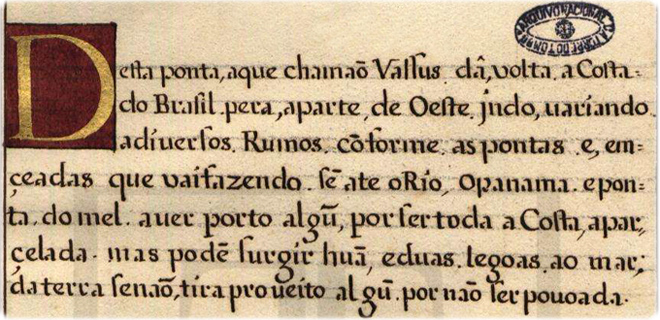 ARQUIVO NACIONAL DA TORRE DO TOMBO
Desta ponta, aque chamaõ Vassus. dâ, volta. a Costa.
do Brasil. pera, aparte, de Oeste. jndo, uariando.
adiuersos. Rumos. cõforme. as pontas. e, em=
çeadas que uaifazendo. sẽ ate oRio, Opanama. epon=
ta. do mel. auer porto algũ, por ser toda a Costa, apar,
çelada. mas podẽ surgir huã, eduas. legoas. ao mar;
da terra senaõ, tira proueito algũ. por naõ ser pouoada.